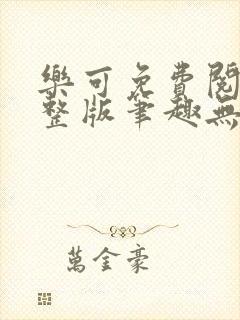 樂可免費閱
整版筆趣無
萬金豪